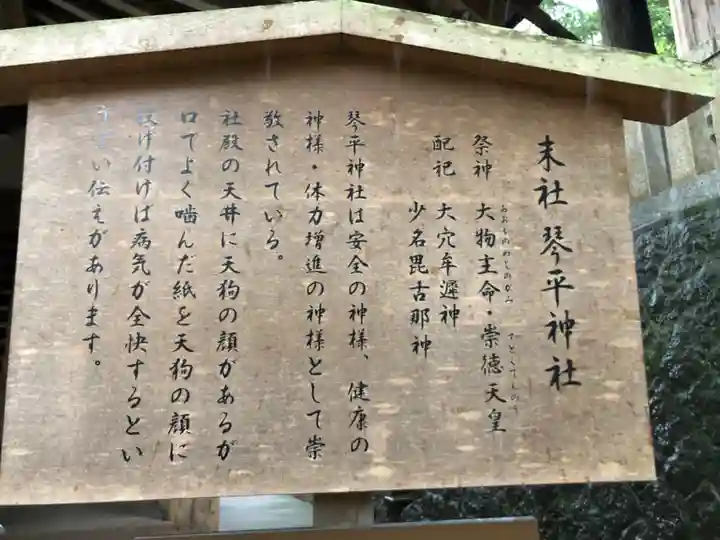 末社 琴平神社
祭神 大物主命・崇徳天皇
配祀 大穴牟遲神
少名毘古那神
琴平神社は安全の神様、健康の
神様・体力増進の神様として崇
敬されている。
社殿の天井に天狗の顔があるが
口でよく噛んだ紙を天狗の顔に
け付けば病気が全快するとい
い伝えがあります。